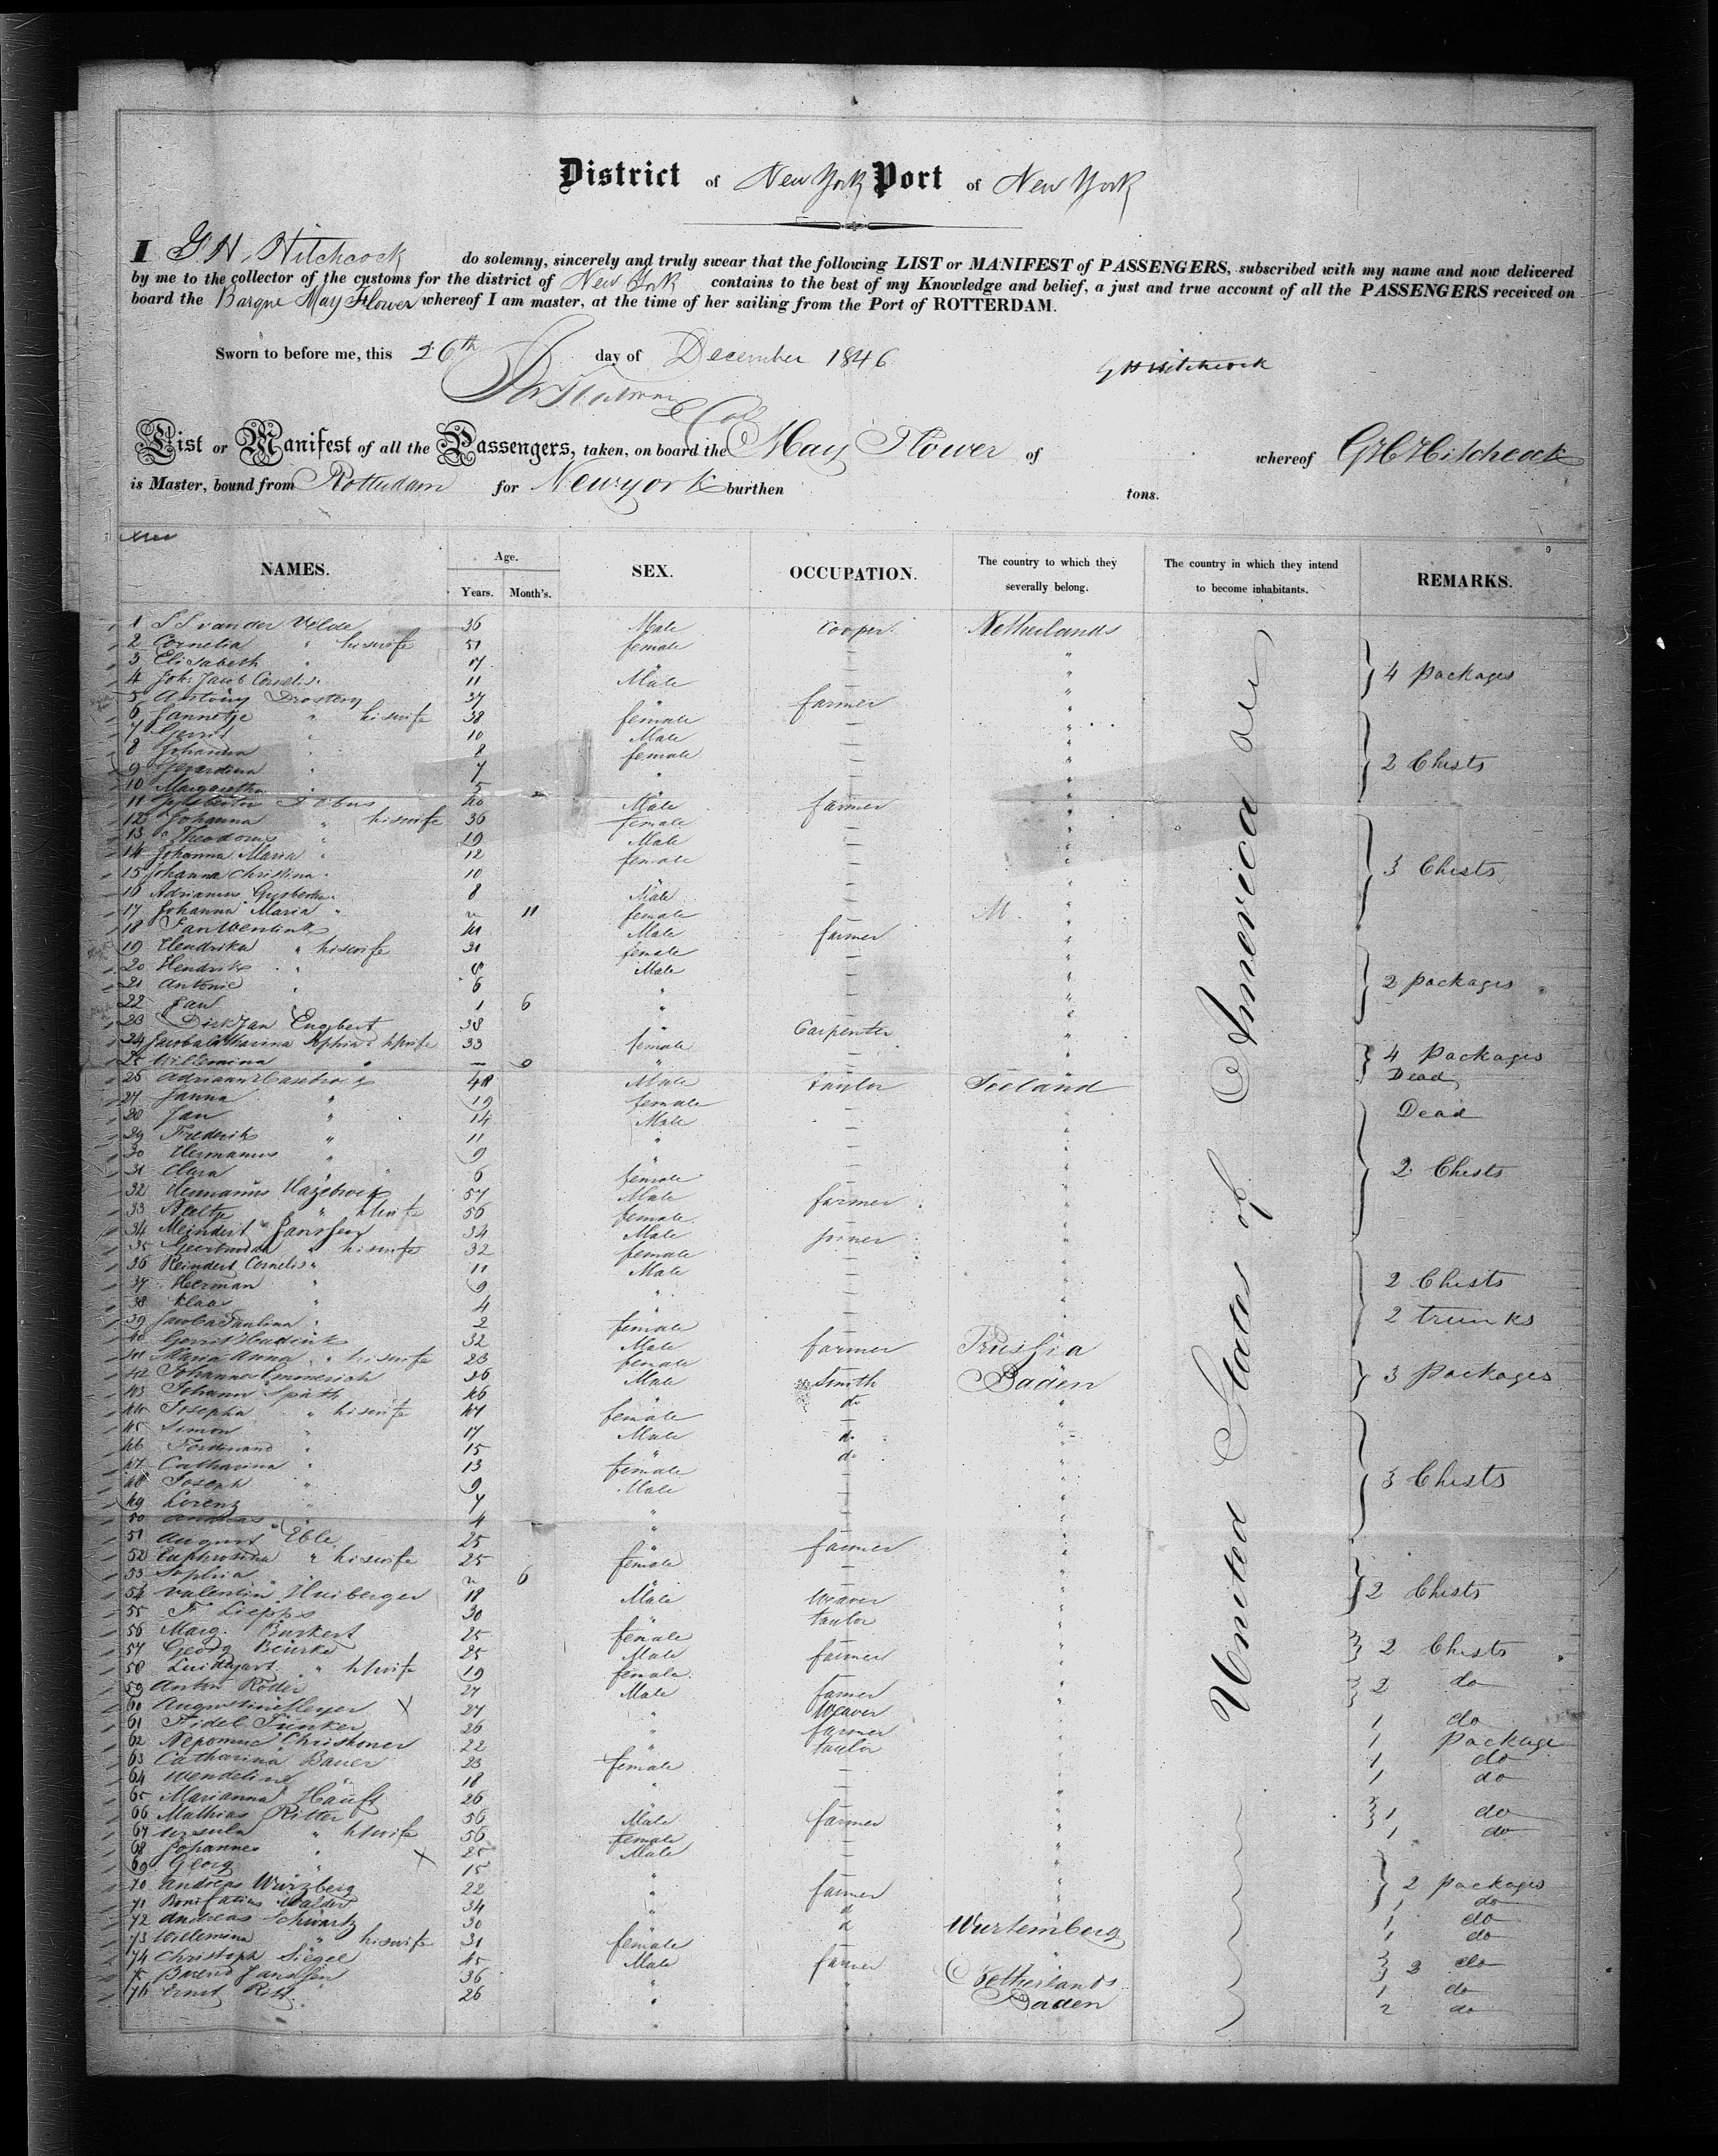 District of New York Port of New York
I G. H. Hitchcock do solemny, sincerely and truly swear that the following LIST or MANIFEST of PASSENGERS, subscribed with my name and now delivered
by me to the collector of the customs for the district of New York contains to the best of my Knowledge and belief, a just and true account of all the PASSENGERS received on
board the Barque May Flower whereof I am master, at the time of her sailing from the Port of ROTTERDAM.
Sworn to before me, this 26th day of December 1846
G H Hitchcock
List or Manifest of all the Passengers, taken, on board the May Flower of whereof G H Hitchcock
is Master, bound from Rotterdam for Newyork burthen tons.
NAMES. Age. Years. Month's. SEX. OCCUPATION. The country to which they severally belong. The country in which they intend to become inhabitants. REMARKS.
United States of America
1 van der Velde 36 Male Cooper Netherlands
2 Cornelia " his wife 51 female — "
3 Elisabeth " 17 " — "
4 Joh: Jacob Cornelis 11 Male — " 4 Packages
5 Antony 37 " farmer "
6 Jannetje " his wife 38 female — "
7 Gerrit " 10 Male — "
8 Johanna " 8 female — "
9 Gerardina " 7 " — " 2 Chests
10 Margaretha " 5 " — "
11 40 Male farmer "
12 Johanna " his wife 36 female — "
13 Theodorus " 19 Male — "
14 Johanna Maria " 12 female — "
15 Johanna Christina " 10 " — " 3 Chests
16 Adrianus 8 Male — "
17 Johanna Maria " " 11 female — "
18 Jan 41 Male farmer "
19 Hendrika " his wife 31 female — "
20 Hendrik " 8 Male — "
21 Antonie " 6 " — " 2 packages
22 Jan " 1 6 " — "
23 Dirk Jan Engbert 38 " Carpenter "
24 Jacoba Catharina Sophia " h wife 33 female — " 4 Packages
25 Willemina " — 0 " — " Dead
26 48 Male taylor
27 Janna " 19 female — " Dead
28 Jan " 14 Male — "
29 Frederik " 11 " — "
30 Hermanus " 9 " — "
31 Clara " 6 female — " 2 Chests
32 Hermanus 57 Male farmer "
33 " h wife 56 female — "
34 Meindert Janssen 34 Male joiner "
35 Geertruida " his wife 32 female — "
36 Reindert Cornelis " 11 Male — "
37 Herman " 9 " — " 2 Chests
38 Klaas " 4 " — "
39 Jacoba Paulina " 2 female — " 2 trunks
40 Gerrit 32 Male farmer Prussia
41 Maria Anna " his wife 23 female — "
42 Johannes 26 Male Smith Baden 3 Packages
43 Johann Späth 46 " do "
44 Josepha " his wife 47 female — "
45 Simon " 17 Male do "
46 Ferdinand " 15 " do "
47 Catharina " 13 female — "
48 Joseph " 9 Male — " 3 Chests
49 Lorenz " 7 " — "
50 Andreas " 4 " — "
51 August Eble 25 " farmer "
52 Euphrosina " his wife 25 female — "
53 Sophia " " 6 " — "
54 Valentin Huiberger 18 Male Weaver " 2 Chests
55 F. 30 " taylor "
56 Marg. Burkert 25 female — "
57 Georg 25 Male farmer " 2 Chests
58 " h wife 19 female — "
59 Anton Röder 27 Male farmer " 2 do
60 Augustin Meyer X 27 " Weaver "
61 Fidel 26 " farmer " 1 do
62 Nepomuc 22 " taylor " 1 Package
63 Catharina Bauer 23 female — " 1 do
64 Wendelin 18 " — " 1 do
65 Marianna Häuft 26 " — "
66 Mathias Ritter 56 Male farmer " 1 do
67 Ursula " h wife 56 female — " 1 do
68 Johannes " 25 Male — "
69 Georg " X 15 " — "
70 Andreas Wurzberg 22 " farmer " 2 packages
71 Bonifatius 34 " d " 1 do
72 Andreas Schwartz 30 " d Wurtemberg 1 do
73 Willemina " his wife 31 female — 1 do
74 Christoph Siegel 45 Male farmer " 3 do
75 Barend Janssen 36 " " Netherlands 1 do
76 Ernst 26 " " Baden 2 do